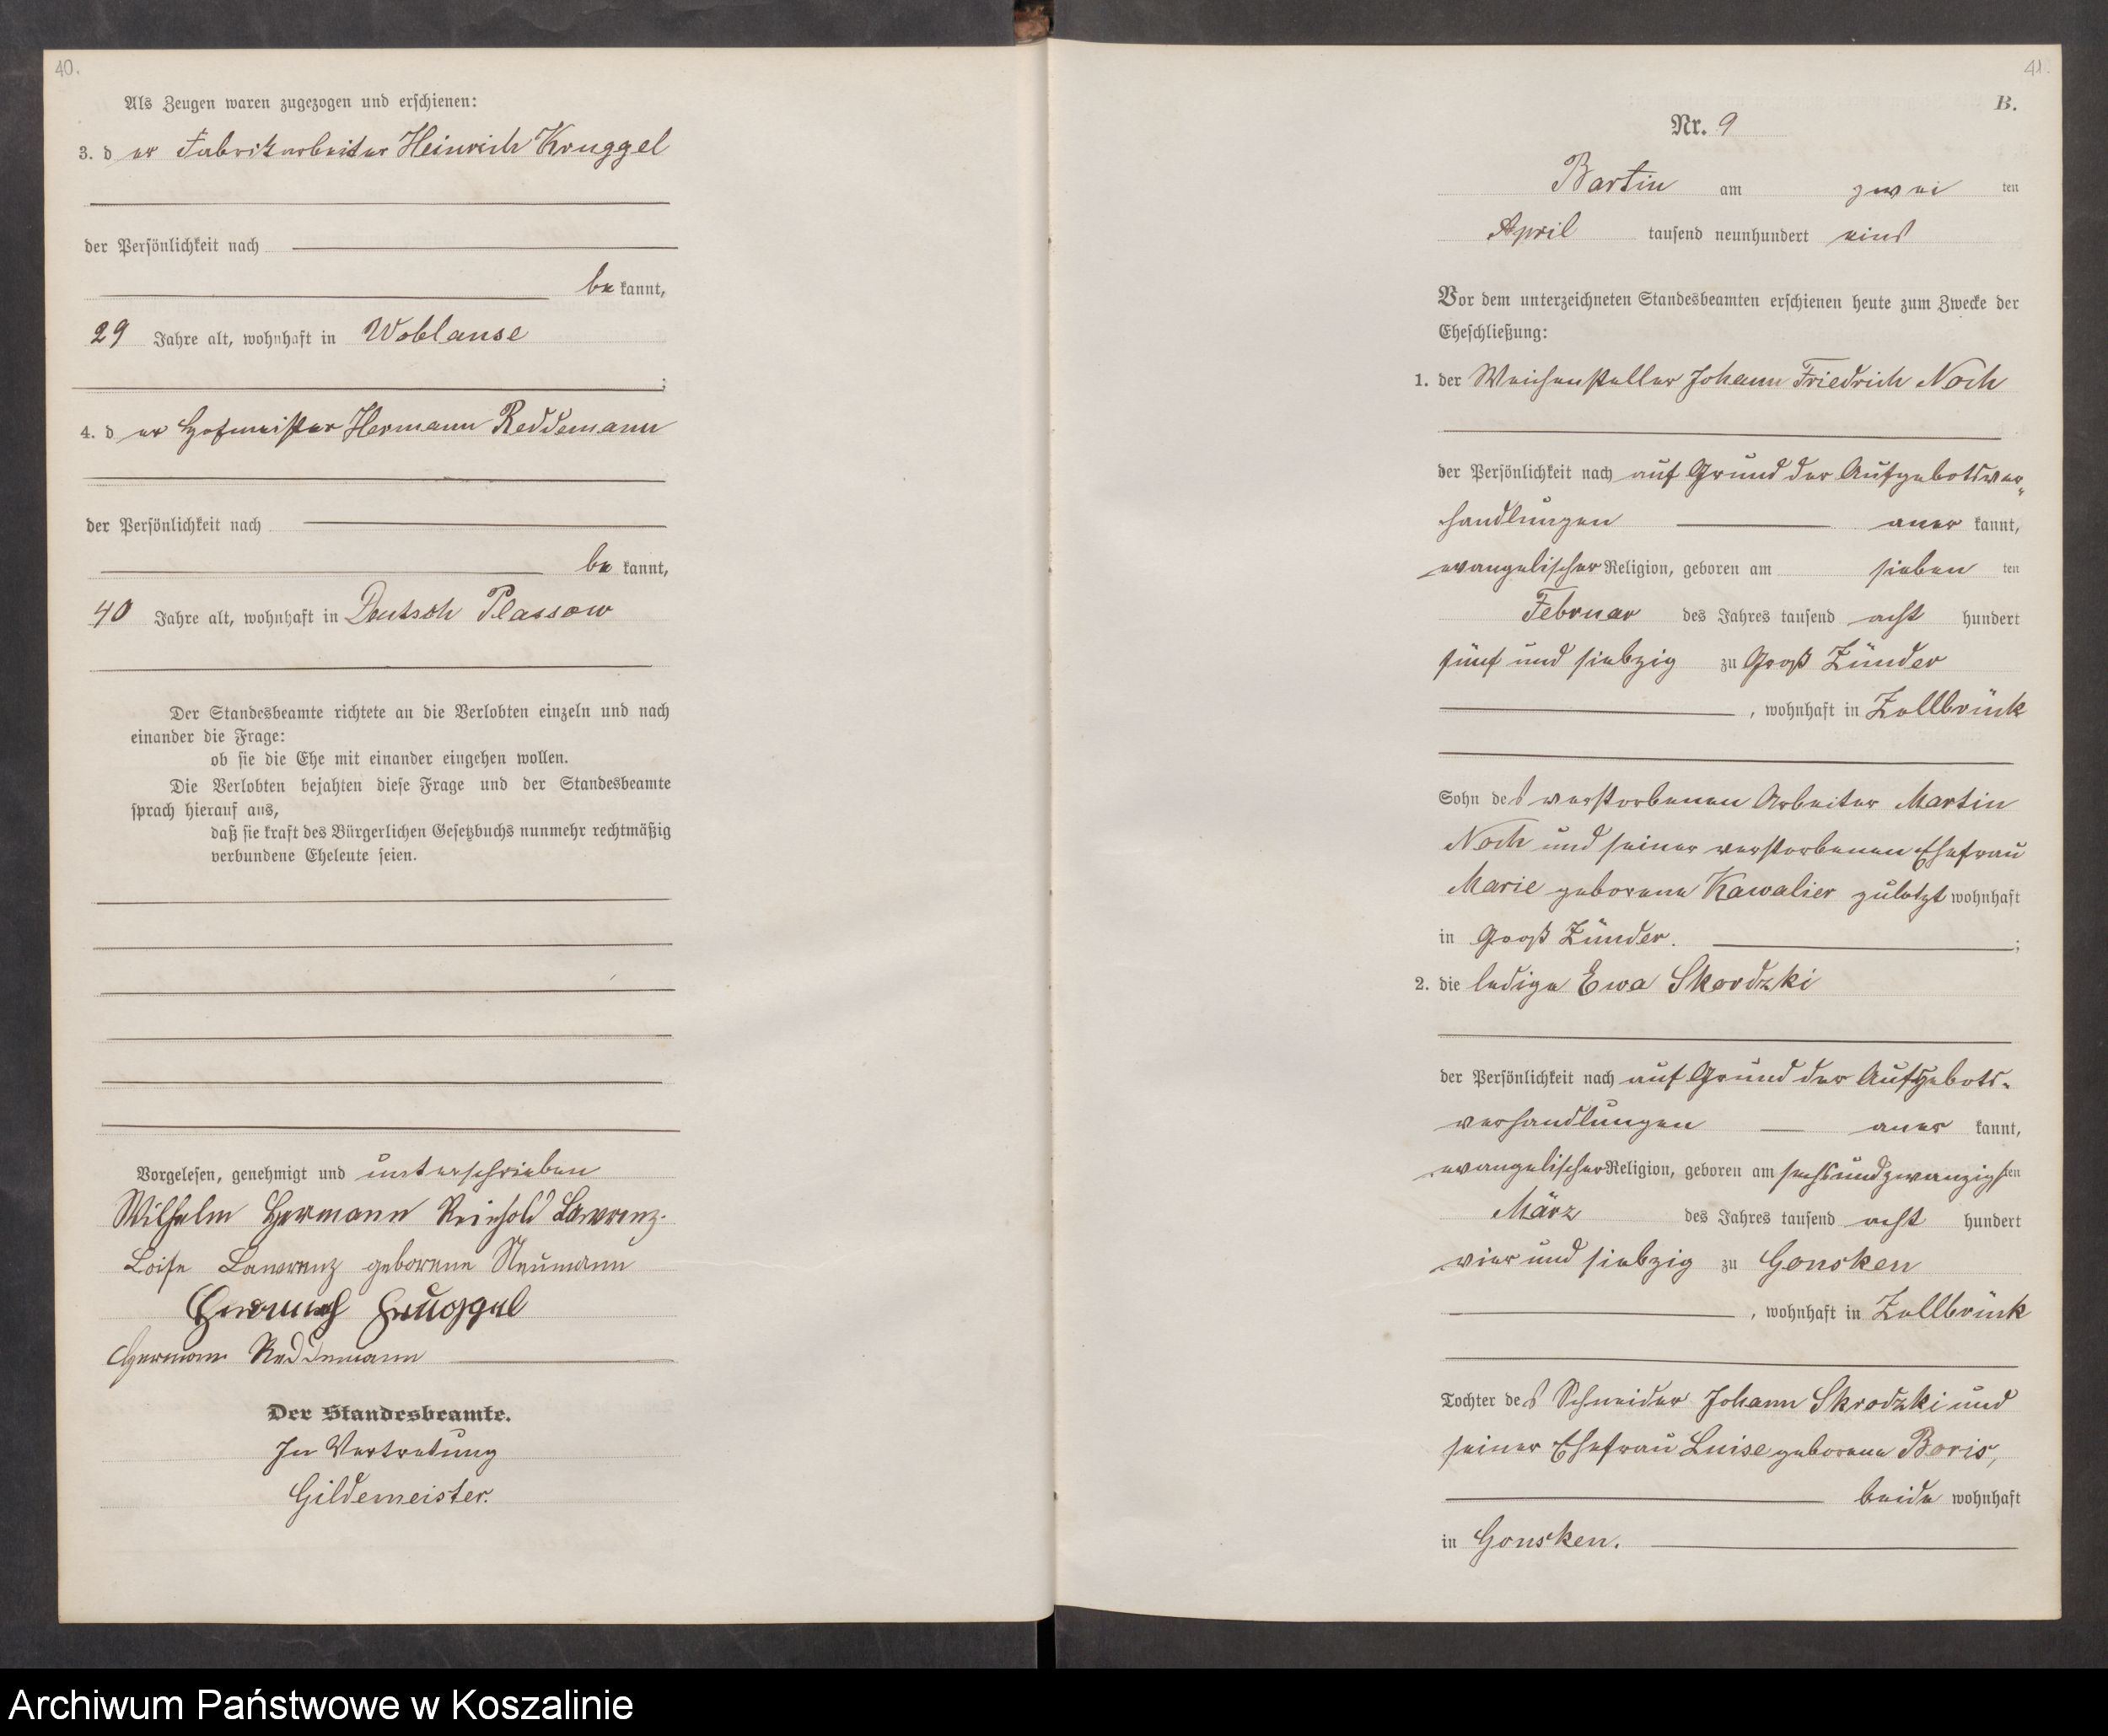 40.
Als Zeugen waren zugezogen und erschienen:
3. d er Fabrikarbeiter Heinrich Kruggel
der Persönlichkeit nach
be kannt,
29 Jahre alt, wohnhaft in Woblanse
;
4. d er Hofmeister Hermann Reddemann
der Persönlichkeit nach
be kannt,
40 Jahre alt, wohnhaft in Deutsch Plassow
Der Standesbeamte richtete an die Verlobten einzeln und nach
einander die Frage:
ob sie die Ehe mit einander eingehen wollen.
Die Verlobten bejahten diese Frage und der Standesbeamte
sprach hierauf aus,
daß sie kraft des Bürgerlichen Gesetzbuchs nunmehr rechtmäßig
verbundene Eheleute seien.
Vorgelesen, genehmigt und unterschrieben
Wilhelm Hermann Reinhold Lawrenz.
Loise Lawrenz geborene Neumann
Kruggel
Hermann Reddemann
Der Standesbeamte.
In Vertretung
Gildemeister.
41.
B.
Nr. 9
Bartin am zwei ten
April tausend neunhundert eins
Vor dem unterzeichneten Standesbeamten erschienen heute zum Zwecke der
Eheschließung:
1. der Weichensteller Johann Friedrich Noch
der Persönlichkeit nach auf Grund der Aufgebotsver-
handlungen aner kannt,
evangelischer Religion, geboren am sieben ten
Februar des Jahres tausend acht hundert
fünf und siebzig zu Groß Zünder
, wohnhaft in Zollbrück
Sohn des verstorbenen Arbeiter Martin
Noch und seiner verstorbenen Ehefrau
Marie geborene Kawalier zuletzt wohnhaft
in Groß Zünder. ;
2. die ledige Ewa Skordzki
der Persönlichkeit nach auf Grund der Aufgebots-
verhandlungen aner kannt,
evangelischer Religion, geboren am sechsundzwanzigsten
März des Jahres tausend acht hundert
vier und siebzig zu Gonsken
, wohnhaft in Zollbrück
Tochter des Schneider Johann Skrodzki und
seiner Ehefrau Luise geborene Boris,
beide wohnhaft
in Gonsken.
Archiwum Państwowe w Koszalinie